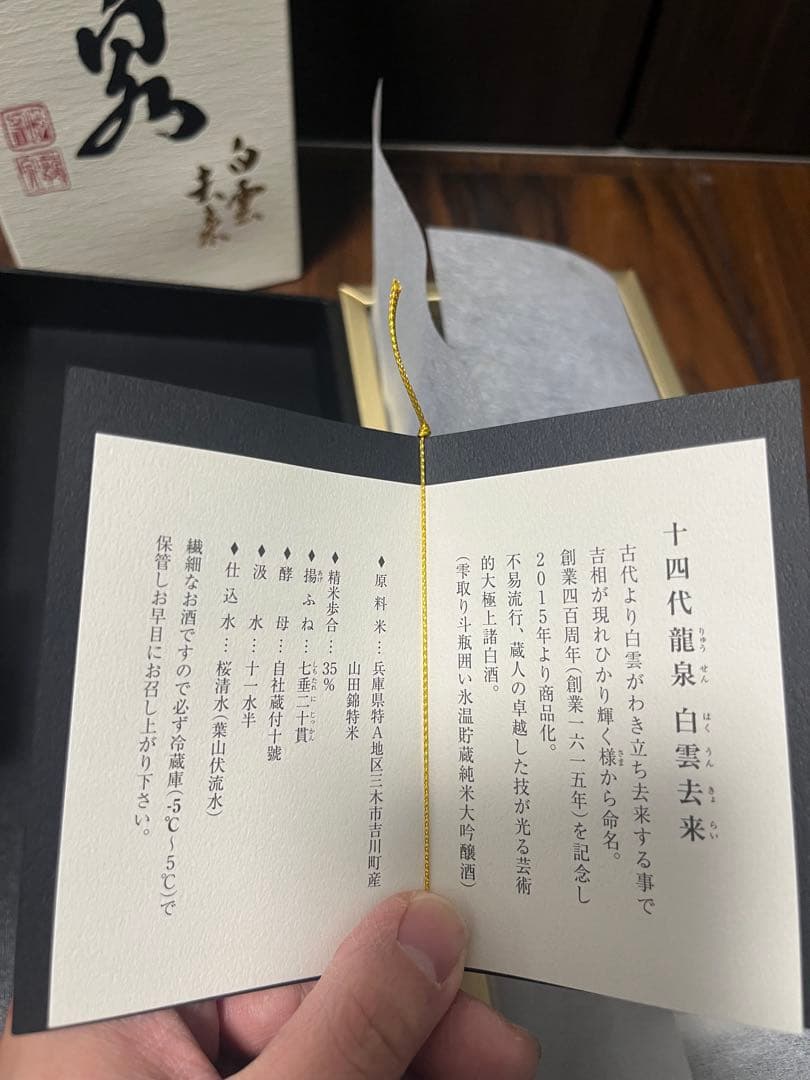 泉
白雲
去来
十四代 龍泉 白雲去来
りゅう せん はく うん きょ らい
古代より白雲がわき立ち去来する事で
吉相が現れひかり輝く様から命名。
さま
創業四百周年(創業一六一五年)を記念し
2015年より商品化。
不易流行、蔵人の卓越した技が光る芸術
的大極上諸白酒。
(雫取り斗瓶囲い氷温貯蔵純米大吟醸酒)
♦原料米…兵庫県特A地区三木市吉川町産
山田錦特米
♦精米歩合…35%
♦揚ふね…七垂二十貫
あげ しちたれ に じっかん
♦酵母…自社蔵付十號
♦汲水…十一水半
♦仕込水…桜清水(葉山伏流水)
繊細なお酒ですので必ず冷蔵庫(-5℃〜5℃)で
保管しお早目にお召し上がり下さい。